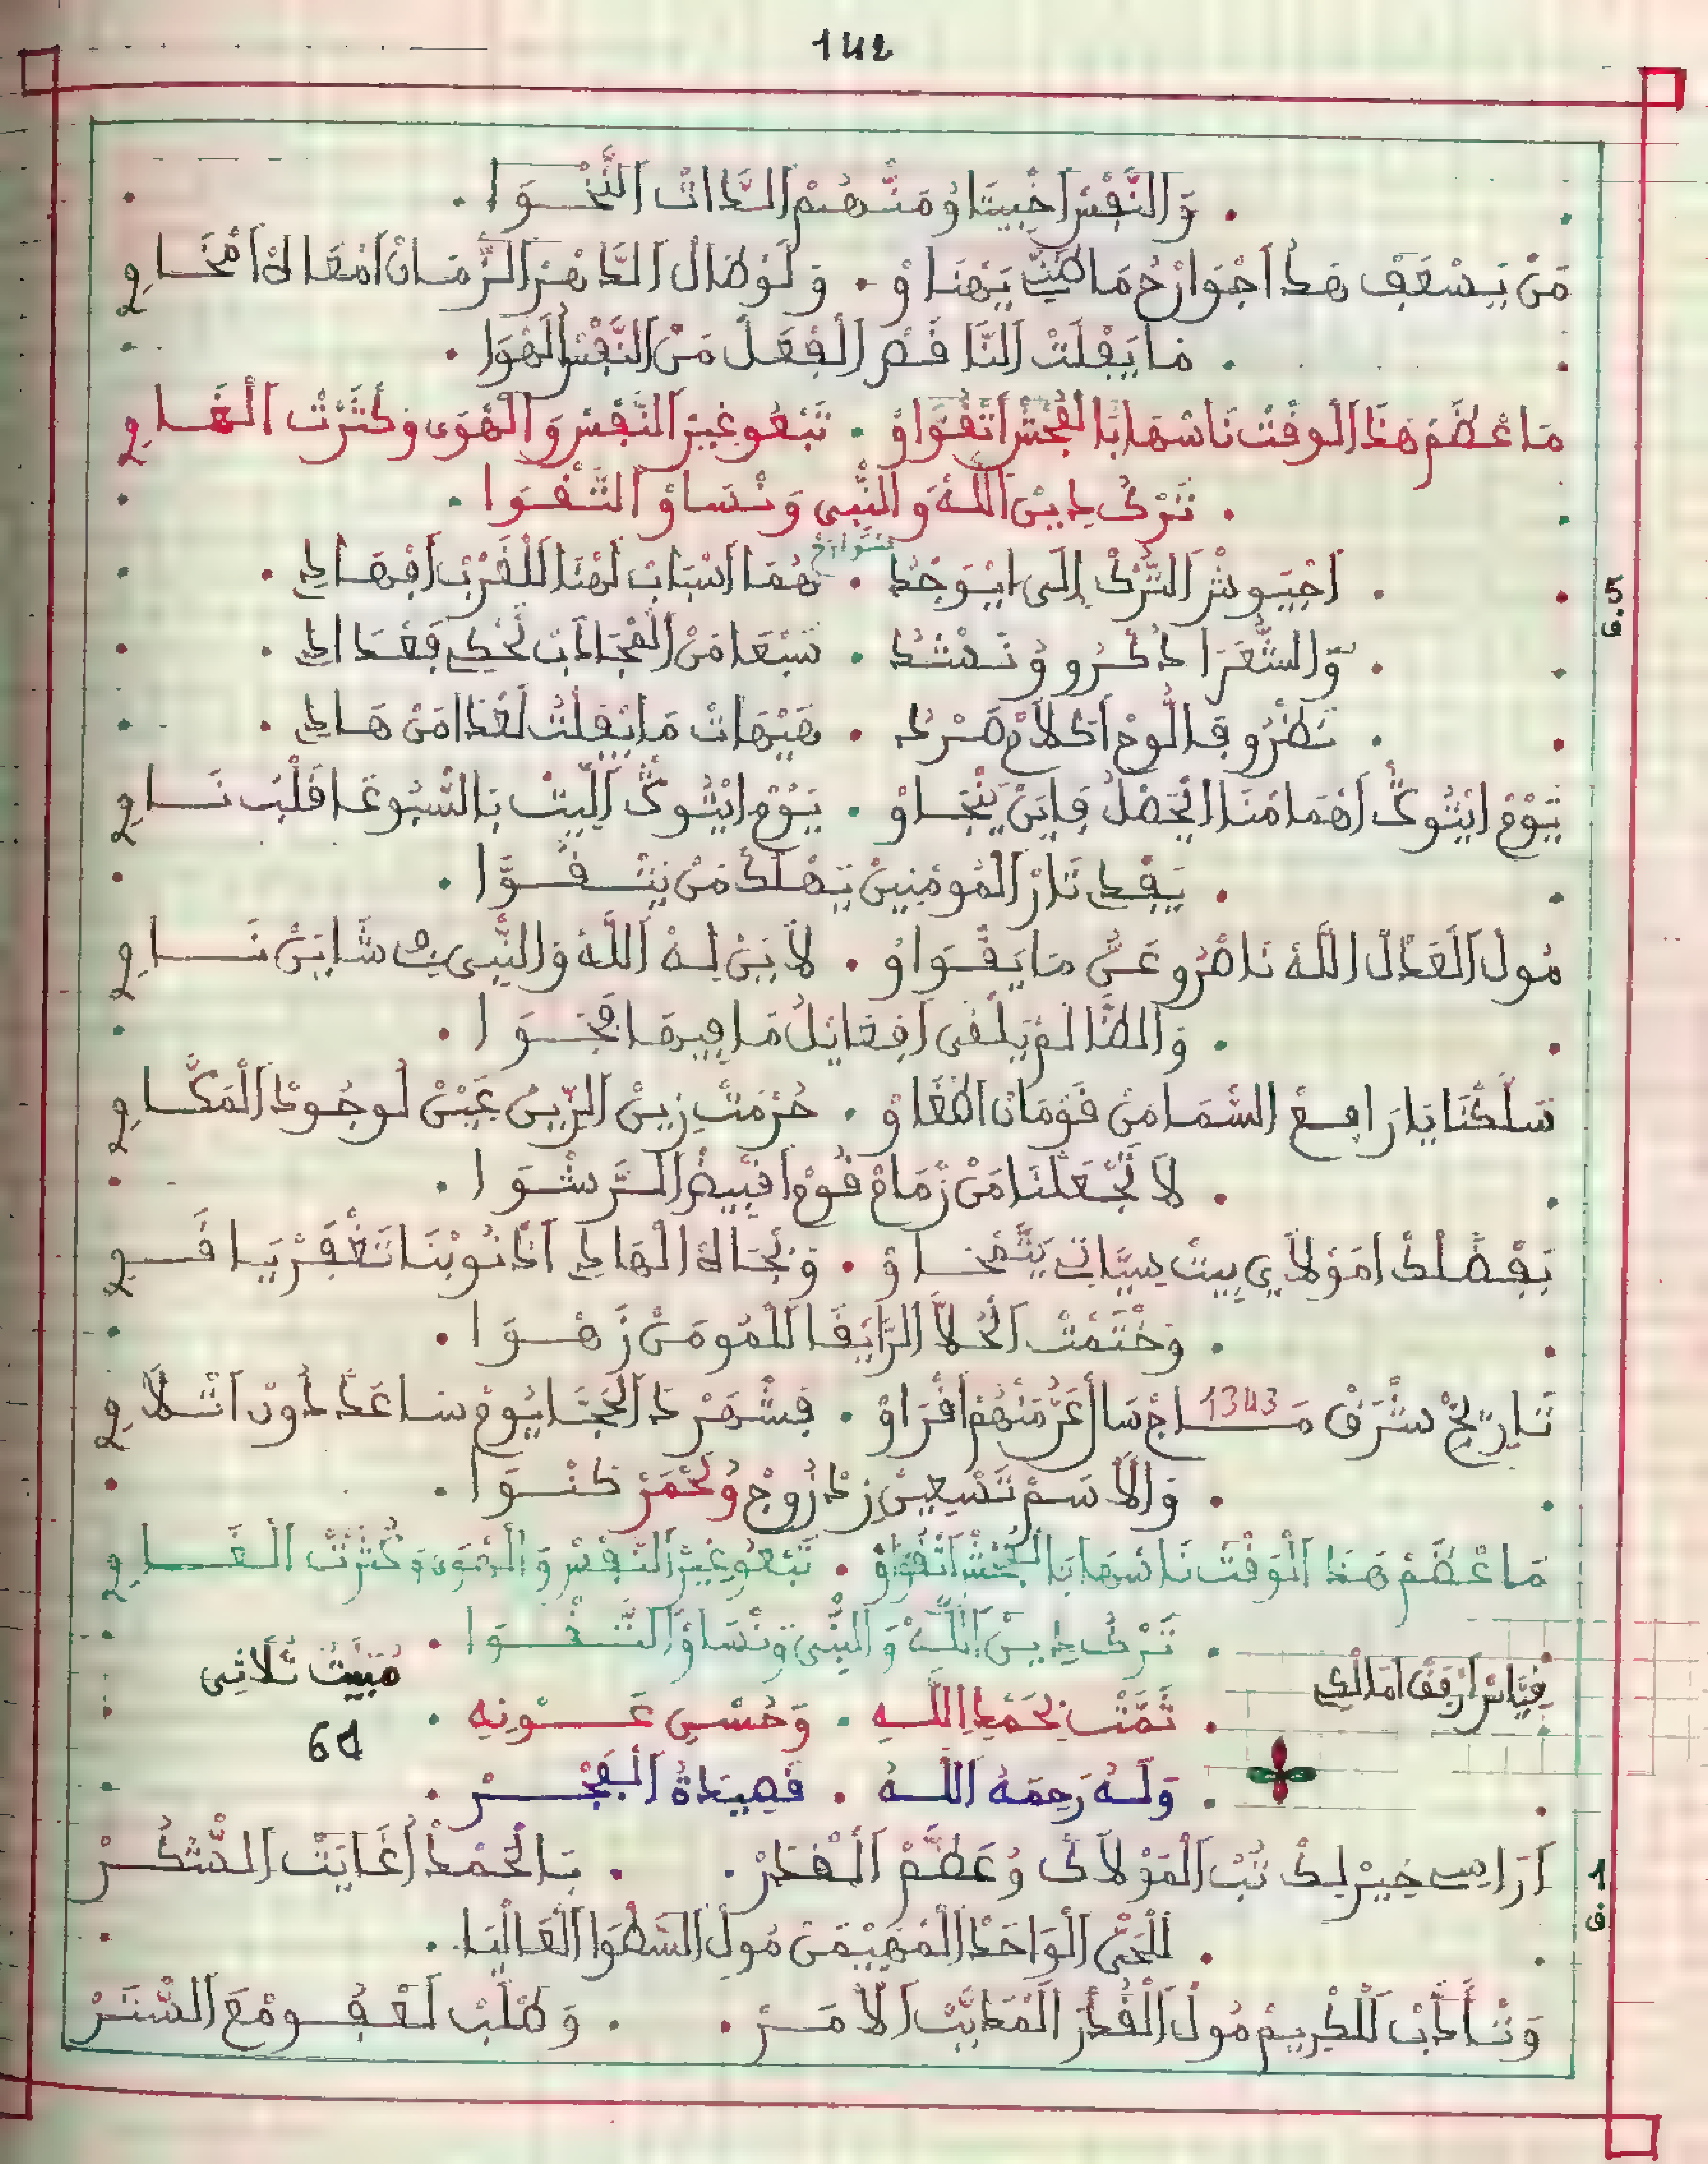 142
وَالنَّفْسْ اخْبِيتَا وُمَنْهُمْ الدَّاتْ النَّخْوَا
مَنْ يَسْعَفْ هَدْ اجْوَارْحُ مَا ظنِّي يَهْنَاوْ . وَلَوْ طَالْ الدَّهْرْ الزّمَانْ امْعَاهْ امْخَاوِي
مَا يَفْلَتْ النَّاقَصْ الْفْعَلْ مَنْ النَّفْسْ الْهْوَا
مَا عْظَمْ هَذَا الْوقْتْ نَاسْهَا بَالْفُحْشْ اتْقَوَّاوْ . تَبْعُو غِيرْ النَّفْسْ وَالْهْوَى وَكَثْرَتْ الْغَاوِي
تَرْكُ دِينْ اللَّهْ وَالنّْبِي وَنْسَاوْ التَّقْوَا
ف 5
اجْيُوشْ التَّرْكْ إلَى ايْوَجْدُ . هُمَا اسْبَابْ لَهْنَا لَلْقَرْبْ افْهَادِي
تَتْوَارَخْ
وَالشُّعَرَا دَكْرُو وُنَشْدُ . سَبْعَا مَنْ الْعْجَادَبْ تَحْكِي فَعْدَادِي
نَظْرُو فَاللُّوحْ اكْلَامْ صَرْدُ . هَيْهَاتْ مَا يْفِلْتْ لَعْدَا مَنْ هَادِي
يَوْمْ ايْتُوكْ اهْمَامْنَا الْحَصْلُ فَايَنْ يَنْجَاوْ . يَوْمْ ايْتُوكْ اللِّيتْ بَالسّْبُوعَا قَلْبُ نَاوِي
يَفْدِي تَارْ الْمُومْنِينْ يَهْلَكْ مَنْ يَتْقَوَّا
مُولْ الْعَدْلْ اللَّهْ نَاصْرُو عَنْ مَا يَقْوَاوْ . لَا يَنْ لِهْ اللَّهْ وَالنّْبِي فِي شَايَنْ نَاوِي
وَالظَّالَمْ يَلْقَى افْعَايْلُ مَا فِيهَا فَجْوَا
سَلَّكْنَا يَا رَافِعْ السّْمَا مَنْ قَوْمَانْ الطْغَاوْ . حُرْمَتْ زِينْ الزِّينْ عَيْنْ لُوجُودْ الْمَكَّاوِي
لَا تَجْعَلْنَا مَنْ زْمَامْ قَوْمْ اقْبِيضْ الرَّشْوَا
بَفْضْلَكْ امَوْلَايْ بِيتْ سِيَّاتِي يَتّمْحَاوْ . وَبْجَاهْ الْهَادِي ادْنُوبْنَا تَغْفَرْ يَا قَوِي
وَخْتَمْتْ الْحُلَّا الرَّايْقَا لَلْمُومَنْ زَهْوَا
تَارِيخْ شْرَقْ مَاجْ سَالْ عَزّ مَنْهُمْ افْرَاوْ . فَشْهَرْ دَ الْحَجَّا يُومْ سَاعَدْ دُونْ اتْلَاوِي
1343
وَالَاسَمْ تَسْعِينْ زِدْ زُوجْ وُلَحْمَرْ كَنْوَا
مَا عْظَمْ هَذَا الْوَقْتْ نَاسْهَا بَالْفُحْشْ اتْقَوَّاوْ . تَبْعُو غِيرْ النَّفْسْ وَالْهْوَى وَكُتْرَتْ الْغَاوِي
تَرْكُ دِينْ اللَّهْ وَالنّْبِي وَنْسَاوْ التَّقْوَا
فِيَّاسْ ارْفَقْ امَالْكِي
مْبَيَّتْ ثُلَاثِي
61
تَمَّتْ بِحَمْدِ اللَّهِ . وَحُسْنِ عَوْنِهِ
وَلَهُ رَحِمَهُ اللَّهُ . قَصِيدَةُ الْفَجْرْ
ف 1
ارَاسِي خِيرْ لِكْ تُبْ الْمَوْلَاكْ وُعَظَّمْ الْقْدَرْ . بَالْحَمْدْ اغَايَتْ الشُّكُرْ
لَلْحَيْ الْوَاحَدْ الْمْهَيْمَنْ مُولْ السَّطْوَا الْعَالْيَا
وَتْأَدَّبْ لَلْكْرِيمْ مُولْ الْقُدْرَ الْمْدَبَّرْ الَامَرْ . وَطْلَبْ لَعْفُو مْعَ السّْتَرْ